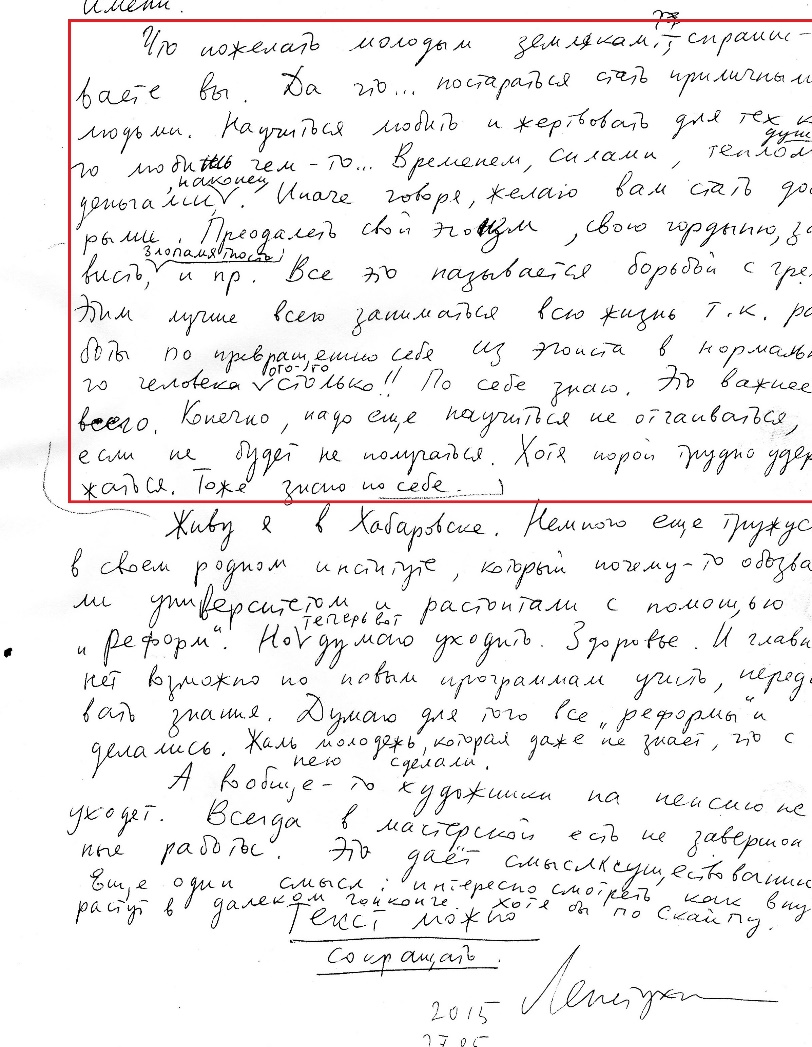 имени.
Что пожелать молодым землякам, спраши-
ваете вы. Да что... постараться стать приличным
людьми. Научиться любить и жертвовать для тех к
душ
го любишь чем-то... Временем, силами, теплом
, наконец
деньгами. Иначе говоря, желаю вам стать до
рыми. Преодалеть свой эгоизм, свою гордыню, за
злопамятность,
висть, и пр. Все это называется борьбой с гре
Этим лучше всего заниматься всю жизнь т.к. ра
боты по превращению себя из эгоиста в нормаль
ого-го
го человека столько!! По себе знаю. Это важнее
всего. Конечно, надо еще научиться не отчаиваться,
если не будет не получаться. Хотя порой трудно удер
жаться. Тоже знаю по себе.
Живу я в Хабаровске. Немного еще тружус
в своем родном институте, который почему-то обозва
ли университетом и растоптали с помощью
теперь вот
"реформ". Но думаю уходить. Здоровье. И главн
нет возможно по новым программам учить, переда
вать знания. Думаю для того все "реформы" и
делались. Жаль молодежь, которая даже не знает, что с
нею сделали.
А вообще-то художники на пенсию не
уходят. Всегда в мастерской есть не завершон
ные работы. Это даёт смысл к существованию
Еще один смысл: интересно смотреть как вну
растут в далеком Гонконге. Хотя бы по Скайпу.
Текст можно
сокращать.
2015
27.05